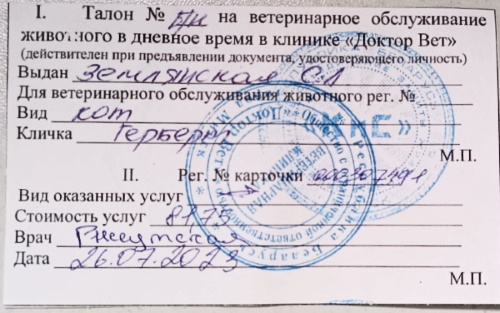 I. Талон № на ветеринарное обслуживание
животного в дневное время в клинике «Доктор Вет»
(действителен при предъявлении документа, удостоверяющего личность)
Выдан Землянская С.Л.
Для ветеринарного обслуживания животного рег. №
Вид кот
Кличка Герберт
М.П.
II. Рег. № карточки
Вид оказанных услуг
Стоимость услуг 81,75
Врач
Дата 26.07.2023
М.П.